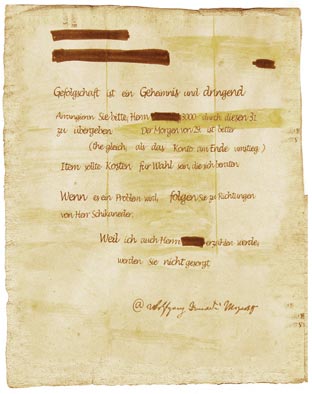 Gefolgschaft ist ein Geheimnis und dringend
Arrangieren Sie bitte, Herrn 3000 durch diesen 31
zu übergeben Der Morgen von 29. ist better
(the gleich als das Konto am Ende umstieg)
Item sollte Kosten für Wahl sein, die sich beraten
Wenn es ein Problem wird, folgen Sie zu Richtungen
von Herr Schikaneder,
Weil ich auch Herrn erzählen werde,
werden Sie nicht gesorgt
@ Wolfgang